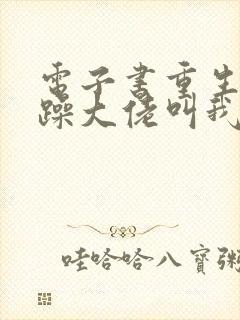 電子書重生
躁大佬叫我
哇哈哈八寶粥